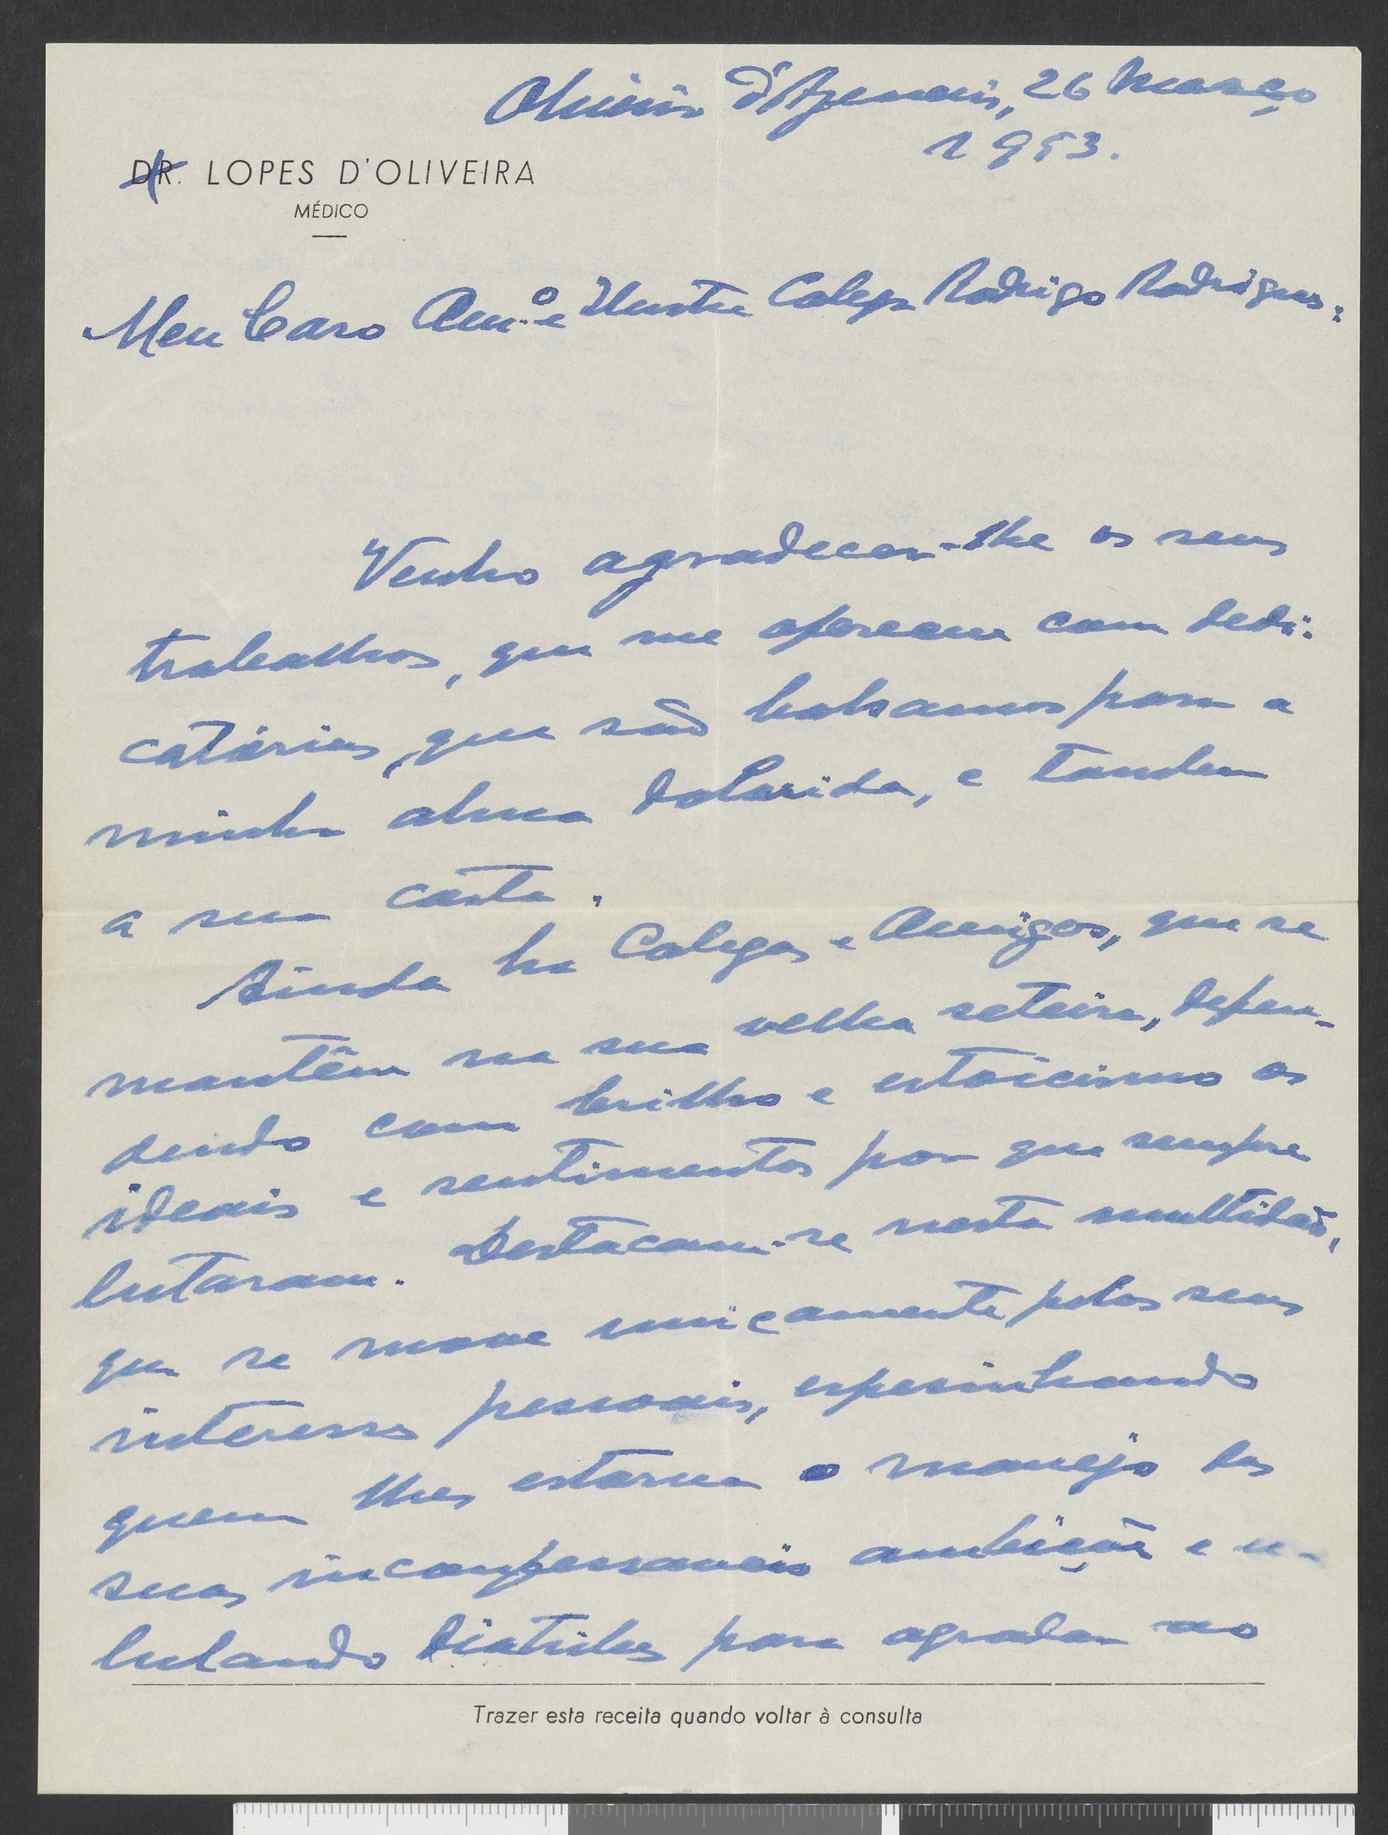 Oliveira d'Azemeis, 26 Março
1953.
DR. LOPES D'OLIVEIRA
MÉDICO
Meu Caro Am.º e Ilustre Colega Rodrigo Rodrigues:
Venho agradecer-lhe os seus
trabalhos, que me oferece com dedi-
catórias, que são balsamos para a
minha alma dolorida, e tambem
a sua carta.
Ainda ha Colegas e Amigos, que se
mantêm na sua velha seteira, defen-
dendo com brilho e estoicismo os
ideais e sentimentos por que sempre
lutaram. Destacam-se nesta multidão,
que se move unicamente pelos seus
interesses pessoais, espesinhando
quem lhes estorva o manejo das
suas inconfessaveis ambições e u-
lulando diatribes para agradar ao
Trazer esta receita quando voltar à consulta